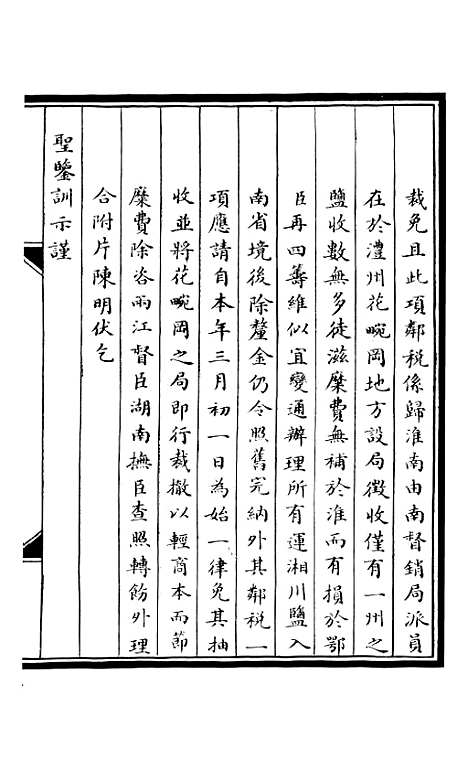 裁免且此項鄰税係歸淮南由南督銷局派員
在於澧州花畹岡地方設局徵收僅有一州之
鹽收數無多徒滋糜費無補於淮而有損於鄂
臣再四籌維似宜變通辦理所有運湘川鹽入
南省境後除釐金仍令照舊完納外其鄰税一
項應請自本年三月初一日為始一律免其抽
收並將花畹岡之局即行裁撤以輕商本而節
糜費除咨兩江督臣湖南撫臣查照轉飭外理
合附片陳明伏乞
聖鑒訓示謹